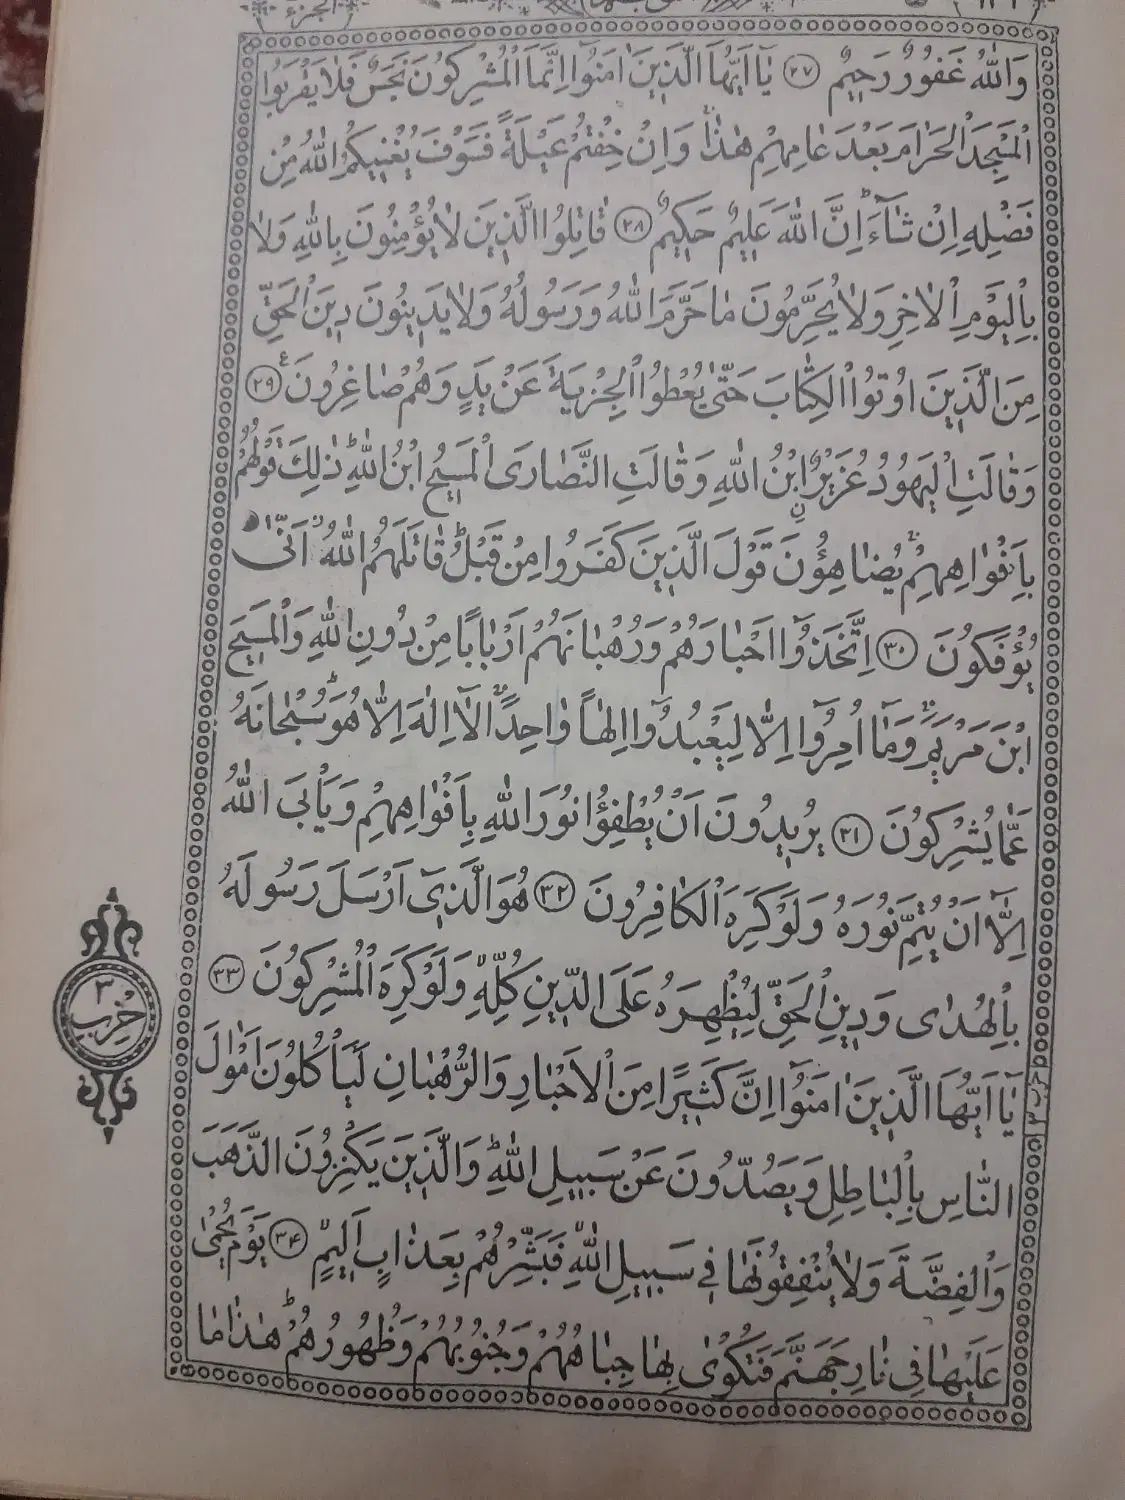 وَاللّٰهُ غَفُورٌ رَحِيمٌ ﴿۲۷﴾ يٰٓا اَيُّهَا الَّذِينَ اٰمَنُوٓا اِنَّمَا الْمُشْرِكُونَ نَجَسٌ فَلَا يَقْرَبُوا
الْمَسْجِدَ الْحَرَامَ بَعْدَ عَامِهِمْ هٰذَا وَاِنْ خِفْتُمْ عَيْلَةً فَسَوْفَ يُغْنِيكُمُ اللّٰهُ مِنْ
فَضْلِهِ اِنْ شَآءَ اِنَّ اللّٰهَ عَلِيمٌ حَكِيمٌ ﴿۲۸﴾ قَاتِلُوا الَّذِينَ لَا يُؤْمِنُونَ بِاللّٰهِ وَلَا
بِالْيَوْمِ الْاٰخِرِ وَلَا يُحَرِّمُونَ مَا حَرَّمَ اللّٰهُ وَرَسُولُهُ وَلَا يَدِينُونَ دِينَ الْحَقِّ
مِنَ الَّذِينَ اُوتُوا الْكِتَابَ حَتّٰى يُعْطُوا الْجِزْيَةَ عَنْ يَدٍ وَهُمْ صَاغِرُونَ ع ﴿۲۹﴾
وَقَالَتِ الْيَهُودُ عُزَيْرٌ ابْنُ اللّٰهِ وَقَالَتِ النَّصَارَى الْمَسِيحُ ابْنُ اللّٰهِ ط ذٰلِكَ قَوْلُهُمْ
بِاَفْوَاهِهِمْ يُضَاهِؤُنَ قَوْلَ الَّذِينَ كَفَرُوا مِنْ قَبْلُ ط قَاتَلَهُمُ اللّٰهُ اَنّٰى
يُؤْفَكُونَ ﴿۳۰﴾ اِتَّخَذُوٓا اَحْبَارَهُمْ وَرُهْبَانَهُمْ اَرْبَابًا مِنْ دُونِ اللّٰهِ وَالْمَسِيحَ
ابْنَ مَرْيَمَ وَمَآ اُمِرُوٓا اِلَّا لِيَعْبُدُوٓا اِلٰهًا وَاحِدًا لَآ اِلٰهَ اِلَّا هُوَ ط سُبْحَانَهُ
عَمَّا يُشْرِكُونَ ﴿۳۱﴾ يُرِيدُونَ اَنْ يُطْفِؤُا نُورَ اللّٰهِ بِاَفْوَاهِهِمْ وَيَاْبَى اللّٰهُ
اِلَّآ اَنْ يُتِمَّ نُورَهُ وَلَوْ كَرِهَ الْكَافِرُونَ ﴿۳۲﴾ هُوَ الَّذِىٓ اَرْسَلَ رَسُولَهُ
بِالْهُدٰى وَدِينِ الْحَقِّ لِيُظْهِرَهُ عَلَى الدِّينِ كُلِّهِ وَلَوْ كَرِهَ الْمُشْرِكُونَ ﴿۳۳﴾
يٰٓا اَيُّهَا الَّذِينَ اٰمَنُوٓا اِنَّ كَثِيرًا مِنَ الْاَحْبَارِ وَالرُّهْبَانِ لَيَاْكُلُونَ اَمْوَالَ
النَّاسِ بِالْبَاطِلِ وَيَصُدُّونَ عَنْ سَبِيلِ اللّٰهِ ط وَالَّذِينَ يَكْنِزُونَ الذَّهَبَ
وَالْفِضَّةَ وَلَا يُنْفِقُونَهَا فِى سَبِيلِ اللّٰهِ فَبَشِّرْهُمْ بِعَذَابٍ اَلِيمٍ ﴿۳۴﴾ يَوْمَ يُحْمٰى
عَلَيْهَا فِى نَارِ جَهَنَّمَ فَتُكْوٰى بِهَا جِبَاهُهُمْ وَجُنُوبُهُمْ وَظُهُورُهُمْ ط هٰذَا مَا
حزب ۳